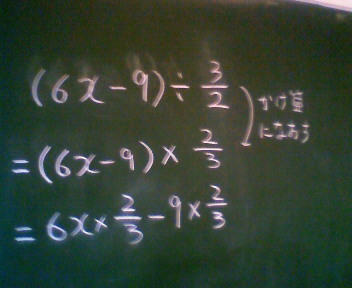 (6x-9)÷3/2
かけ算
になおす
=(6x-9)×2/3
=6x×2/3-9×2/3